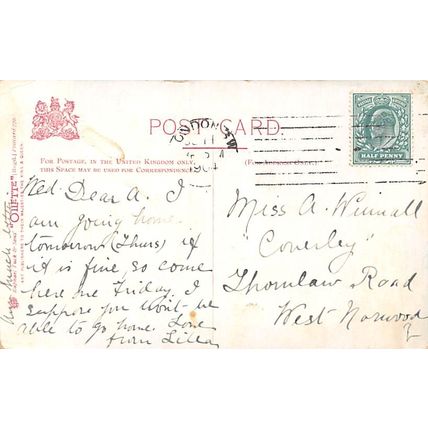 POST CARD.
FOR POSTAGE, IN THE UNITED KINGDOM ONLY,
THIS SPACE MAY BE USED FOR CORRESPONDENCE
HALF PENNY
"OILETTE"
Wed. Dear A. I
am going home
tomorrow (Thurs) if
it is fine, so come
here on Friday. I
suppose you won't be
able to go home. Love
from Lilla
Miss A. Winnall
"Coverley"
Thornlaw Road
West Norwood